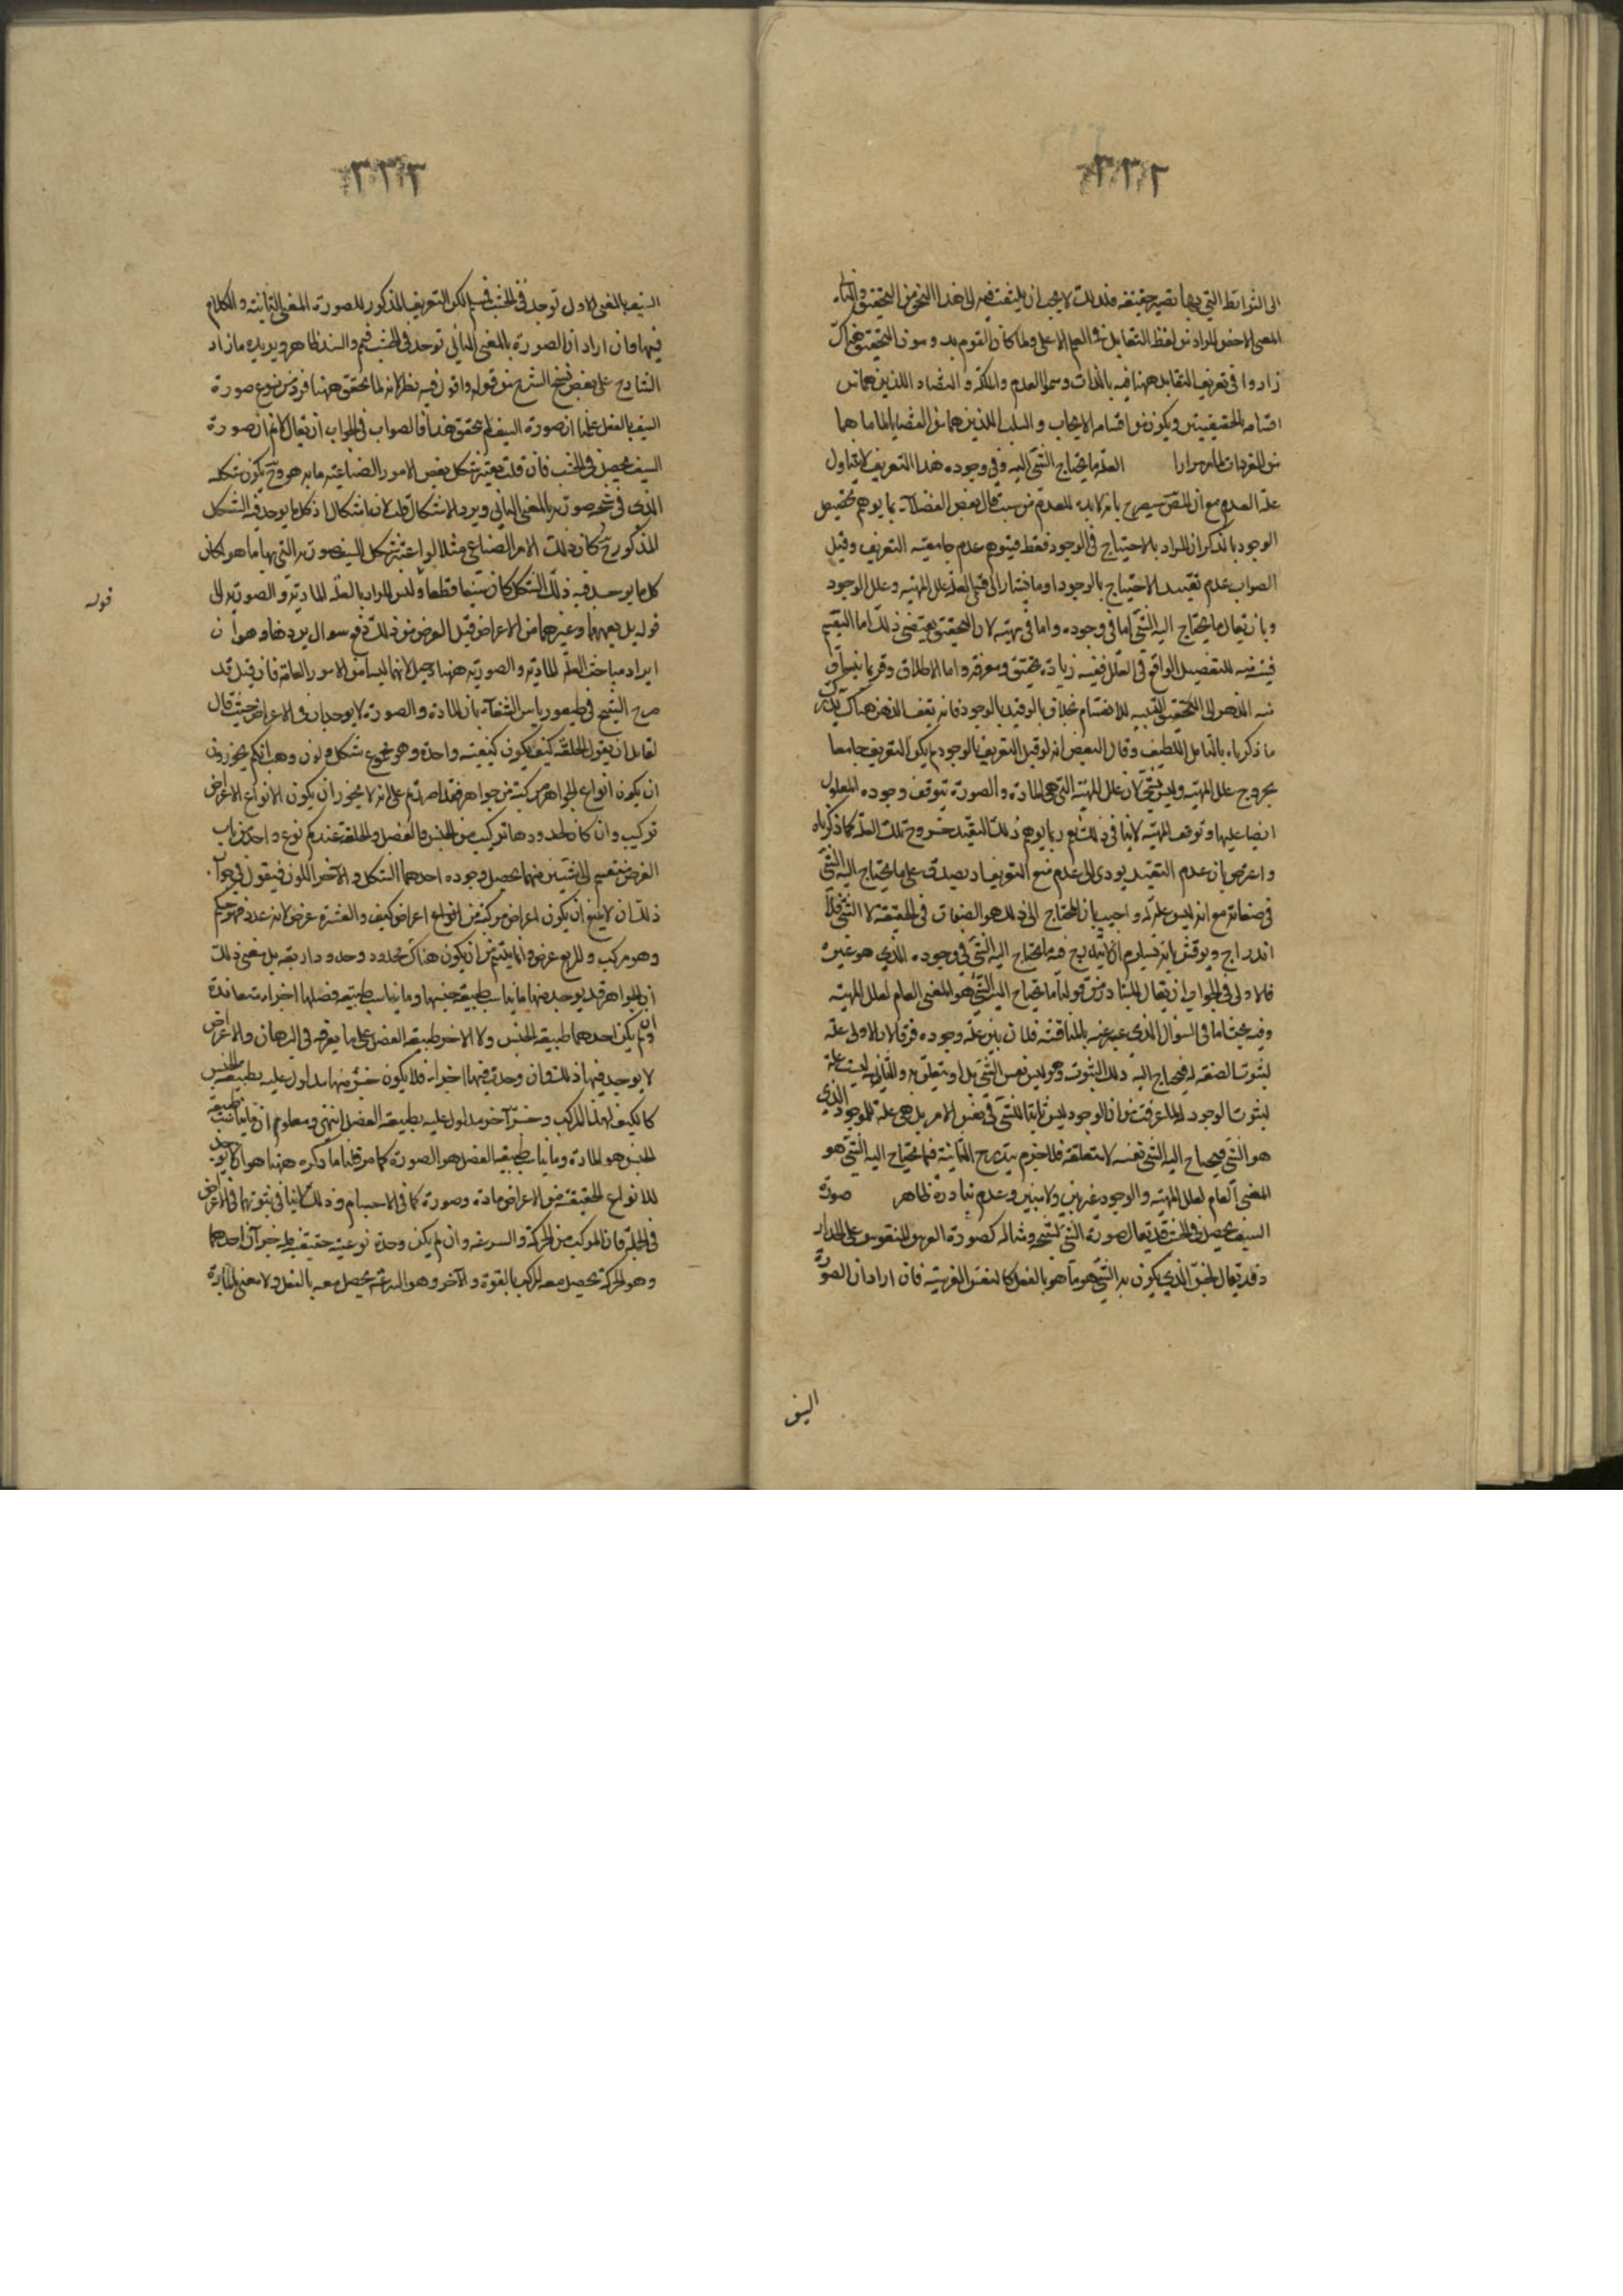 الى الشرائط التي بها تصير حقيقة فلذلك لا يجب ان يلتفت فيه الى هذا النحو من التحقيق والبناء
المعنى الاخص المراد من لفظ التقابل هو العلم الاعلى ولما كان القوم بصدد التحقيق هناك
زادوا في تعريف التقابل ههنا قيد بالذات وسموا العدم والملكة والتضاد اللذين هما من
اقسامه الحقيقيين ويكون من اقسامه الايجاب والسلب اللذين هما من القضايا لما هما
من المفردات لما مر مرارا العلة ما يحتاج الشئ اليه في وجوده هذا التعريف لا يتناول
علة العدم مع ان المص سيصرح بانه لا بد للعدم من سبب قال بعض الفضلاء بما يوهم تخصيص
الوجود بالذكر ان المراد بالاحتياج في الوجود فقط فيتوهم عدم جامعية التعريف وقيل
الصواب عدم تقييد الاحتياج بالوجود او ما يشار الى قسمي العلة علل المهية وعلل الوجود
وبان يقال ما يحتاج اليه الشئ اما في وجوده واما في مهيته لان التحقيق يقتضي ذلك اما التقسيم
فيه للتفصيل الواقع في العلل ففيه زيادة تحقيق ومعرفة واما الاطلاق وقربما ينساق
منه الذهن الى التحقيق للانقسام بخلاف ما لو قيد بالوجود فانه يقف الذهن هناك
ما ذكرناه بالتامل اللطيف وقال البعض انه لو قيل التعريف بالوجود لم يكن التعريف جامعا
بخروج علل المهية وليس بشئ لان علل المهية التي هي المادة والصورة يتوقف وجود المعلول
ايضا عليها وتوقف المهية لا ينافي ذلك نعم ربما يوهم ذلك التقييد خروج تلك العلة كما ذكرناه
واعترض بان عدم التقييد يودى الى عدم منع التعريف اذ يصدق على ما يحتاج اليه الشئ
في صفاته مع انه ليس علة له واجيب بان المحتاج الى ذلك هو الصفات في الحقيقة لا الشئ فلا
اندراج ونوقش بانه فيلزم ان لا يندرج فيه ما يحتاج اليه الشئ في وجوده الذي هو غيره
فالاولى في الجواب ان يقال المتبادر من قولنا ما يحتاج اليه الشئ هو المعنى العام لعلل المهية
وفيه بحث اما في السؤال الذي عبر عنه بالمناقشة فلان بين علة وجوده فرقا لان الاولى علة
لثبوت الصفة له فيحتاج اليه ذلك الثبوت وهو ليس نفس الشئ بل امر يتعلق به والثانية ليست علة
لثبوت الوجود له لما عرفت من ان الوجود ليس ثابتا للشئ في نفس الامر بل هي علة للموجود الذي
هو الشئ فيحتاج اليه الشئ نفسه لا متعلقه فلا جرم يندرج الثانية فيما يحتاج اليه الشئ هو
المعنى العام لعلل المهية والوجود غير بين ولا مبين وعدم تبادره ظاهر صورة
السيف يحصل في الخشب قد يقال صورة الشئ لشبحه ومثاله كصورة الفرس المنقوش على الجدار
وقد يقال للجزء الذي يكون به الشئ هو ما هو بالفعل كالنفس الفرسية فان اراد ان الصورة
السيف
السيف بالمعنى الاول توجد في الخشب فمسلم لكن التعريف المذكور للصورة المعنى الثانية والكلام
فيها وان اراد ان الصورة بالمعنى الثاني توجد في الخشب فمم والسند ظاهر ويريده ما زاد
الشارح على بعض نسخ الشرح من قوله واقول فيه نظر لانه لما تحقق ههنا فرد من نوع صورة
السيف بالفعل علمنا ان صورة السيف لم يتحقق هذا فالصواب في الجواب ان يقال لا نم ان صورة
السيف يحصل في الخشب فان قلت يعتبر شكل بعض الامور الصناعية ما به هو وح يكون شكله
الذي في شخصه صورته بالمعنى الثاني ويرد الاشكال قلت لا اشكال اذ كل ما يوجد فيه الشكل
المذكور ح كان ذلك الامر الصناعي مثلا لو اعتبر شكل السيف صورته التي بها ما هو لكان
كل ما يوجد فيه ذلك الشكل كان سيفا قطعا وليس المراد بالعلة المادية والصورية الى
قوله بل يعمهما وغيرهما من الاعراض قيل الغرض من ذلك دفع سوال يورد هنا وهو ان
ايراد مباحث العلة المادية والصورية ههنا لا وجه لانهما ليسا من الامور العامة فان قيل قد
صرح الشيخ في طيغورياس الشفاء بان المادة والصورة لا يوجدان في الاعراض حيث قال
لقائل ان يقول الخلقة كيف يكون كيفية واحدة وهو مجموع شكل ولون وهب انكم تجوزون
ان يكون انواع الجواهر مركبة من جواهر فقد اصررتم على انه لا يجوز ان يكون الانواع الاعراض
تركيب وان كان لحدودها تركيب من الجنس والفصل والخلقة عندكم نوع واحد من باب
العرض منقسم الى شيئين منهما يحصل وجوده احدهما الشكل والآخر اللون فيقول في جوا
ذلك ان لا يمنع ان يكون اعراض مركبة من انواع اعراض كيف والعشرة عرض لانه عدد فهو كم
وهو مركب والمربع عرض وانما يلتئم من ان يكون هناك محدود وحدود اربعة بل معنى ذلك
ان الجواهر قد يوجد منها ما يناسب طبيعة جنسها وما يناسب طبيعة فصلها اجزاء متعاندة
وان لم يكن احدهما طبيعة الجنس ولا الاخر طبيعة الفصل على ما يعرفه في البرهان والاعراض
لا يوجد فيها ذلك فان وحدت فيها اجزاء فلا يكون جزؤ منها يدل عليه بطبيعة الجنس
كما يكون لهذا المركب وجزء آخر مدلول عليه بطبيعة الفصل انتهى ومعلوم ان ما يناسب طبيعة
الجنس هو المادة وما يناسب طبيعة الفصل هو الصورة كما مر قلنا ما ذكره ههنا هو انه لا يوجد
للانواع الحقيقة من الاعراض مادة وصورة كما في الاجسام وذلك لا ينافي ثبوتهما في الاعراض
في الجملة فان المركب من الحركة والسرعة وان لم يكن وحدة نوعية حقيقية له جزآن احدهما
وهو الحركة يحصل معه المركب بالقوة والآخر وهو السرعة يحصل معه بالفعل ولا معنى للمادة
قوله